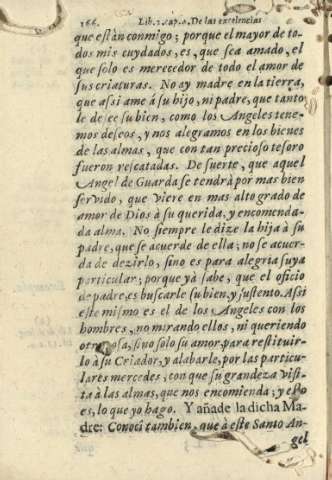 166. Lib. 2. cap. 9. De las excelencias
que están conmigo; porque el mayor de to-
dos mis cuydados, es, que sea amado, el
que solo es merecedor de todo el amor de
sus criaturas. No ay madre en la tierra,
que assi ame à su hijo, ni padre, que tanto
le desee su bien, como los Angeles tene-
mos deseos, y nos alegramos en los bienes
de las almas, que con tan precioso tesoro
fueron rescatadas. De suerte, que aquel
Angel de Guarda se tendrà por mas bien
servido, que viere en mas alto grado de
amor de Dios à su querida, y encomenda-
da alma. No siempre le dize la hija à su
padre, que se acuerde de ella; no se acuer-
da de dezirlo, sino es para alegria suya
particular; porque yà sabe, que el oficio
de padre, es buscarle su bien, y sustento. Assi
este mismo es el de los Angeles con los
hombres, no mirando ellos, ni queriendo
otra cosa, sino solo su amor, para restituir-
lo à su Criador, y alabarle, por las particu-
lares mercedes, con que su grandeza visi-
ta à las almas, que nos encomienda; y esto
es, lo que yo hago. Y añade la dicha Ma-
dre: Conocí tambien, que à este Santo An-
gel